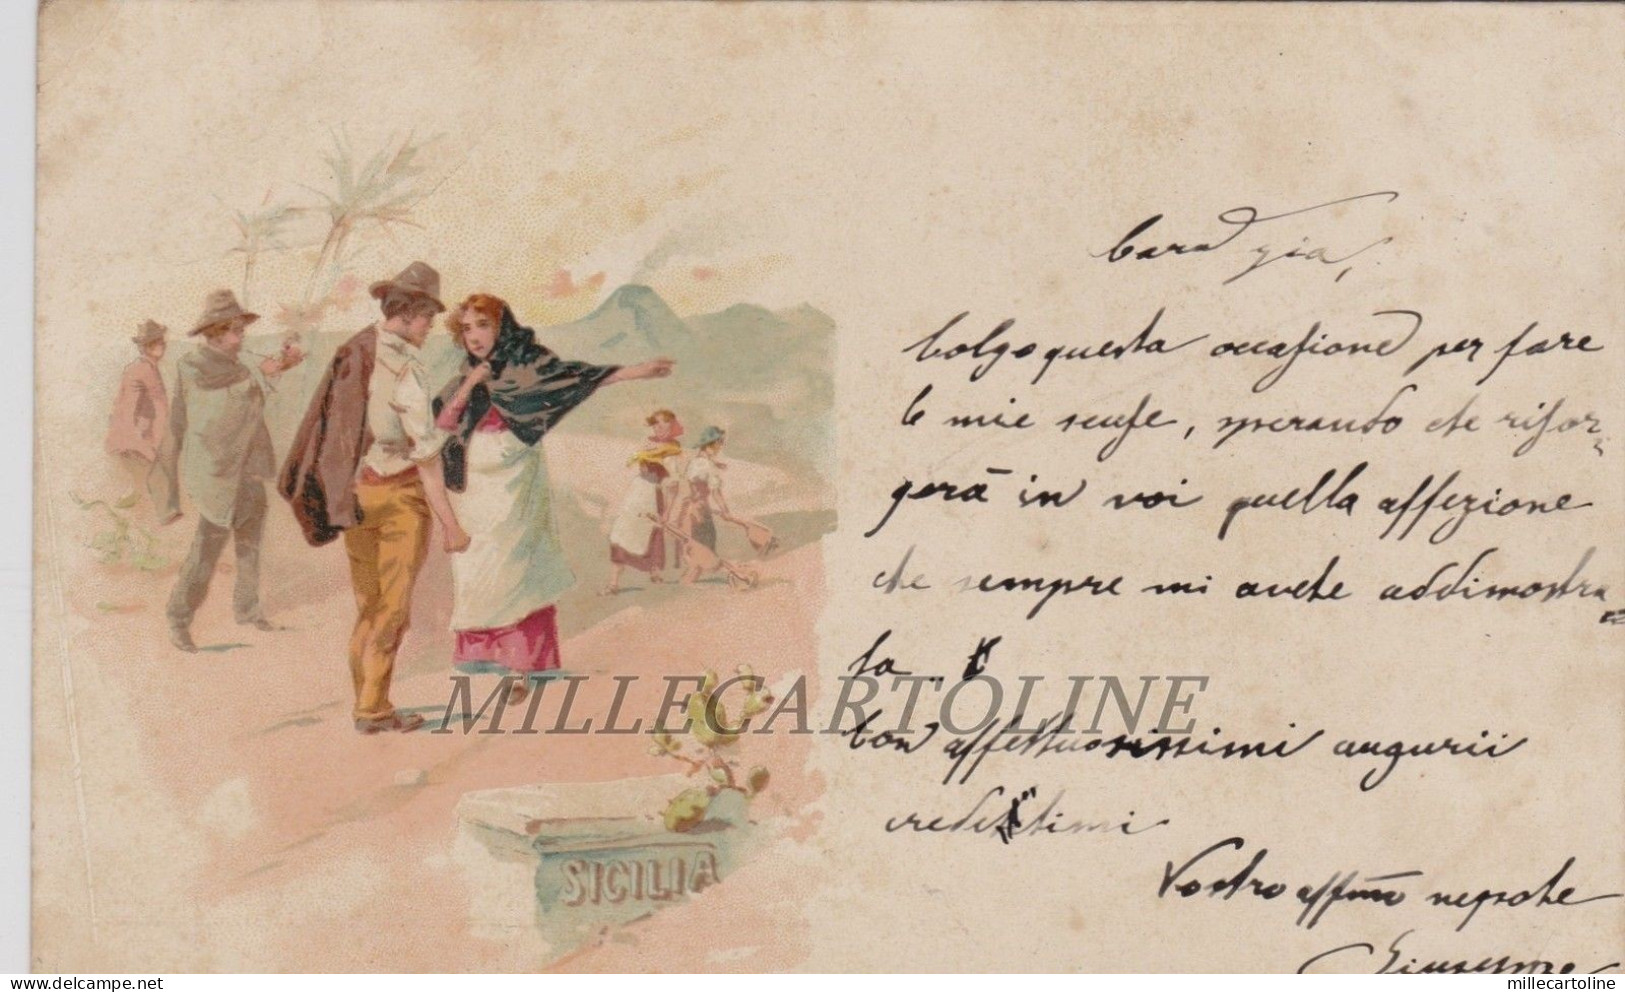 Cara zia,
Colgo questa occasione per fare
le mie scuse, sperando che risor-
gerà in voi quella affezione
che sempre mi avete addimostra-
ta..
Con affettuosissimi augurii
credetemi
Vostro affmo nepote
Giuseppe
SICILIA
MILLECARTOLINE
delcampe.net
millecartoline